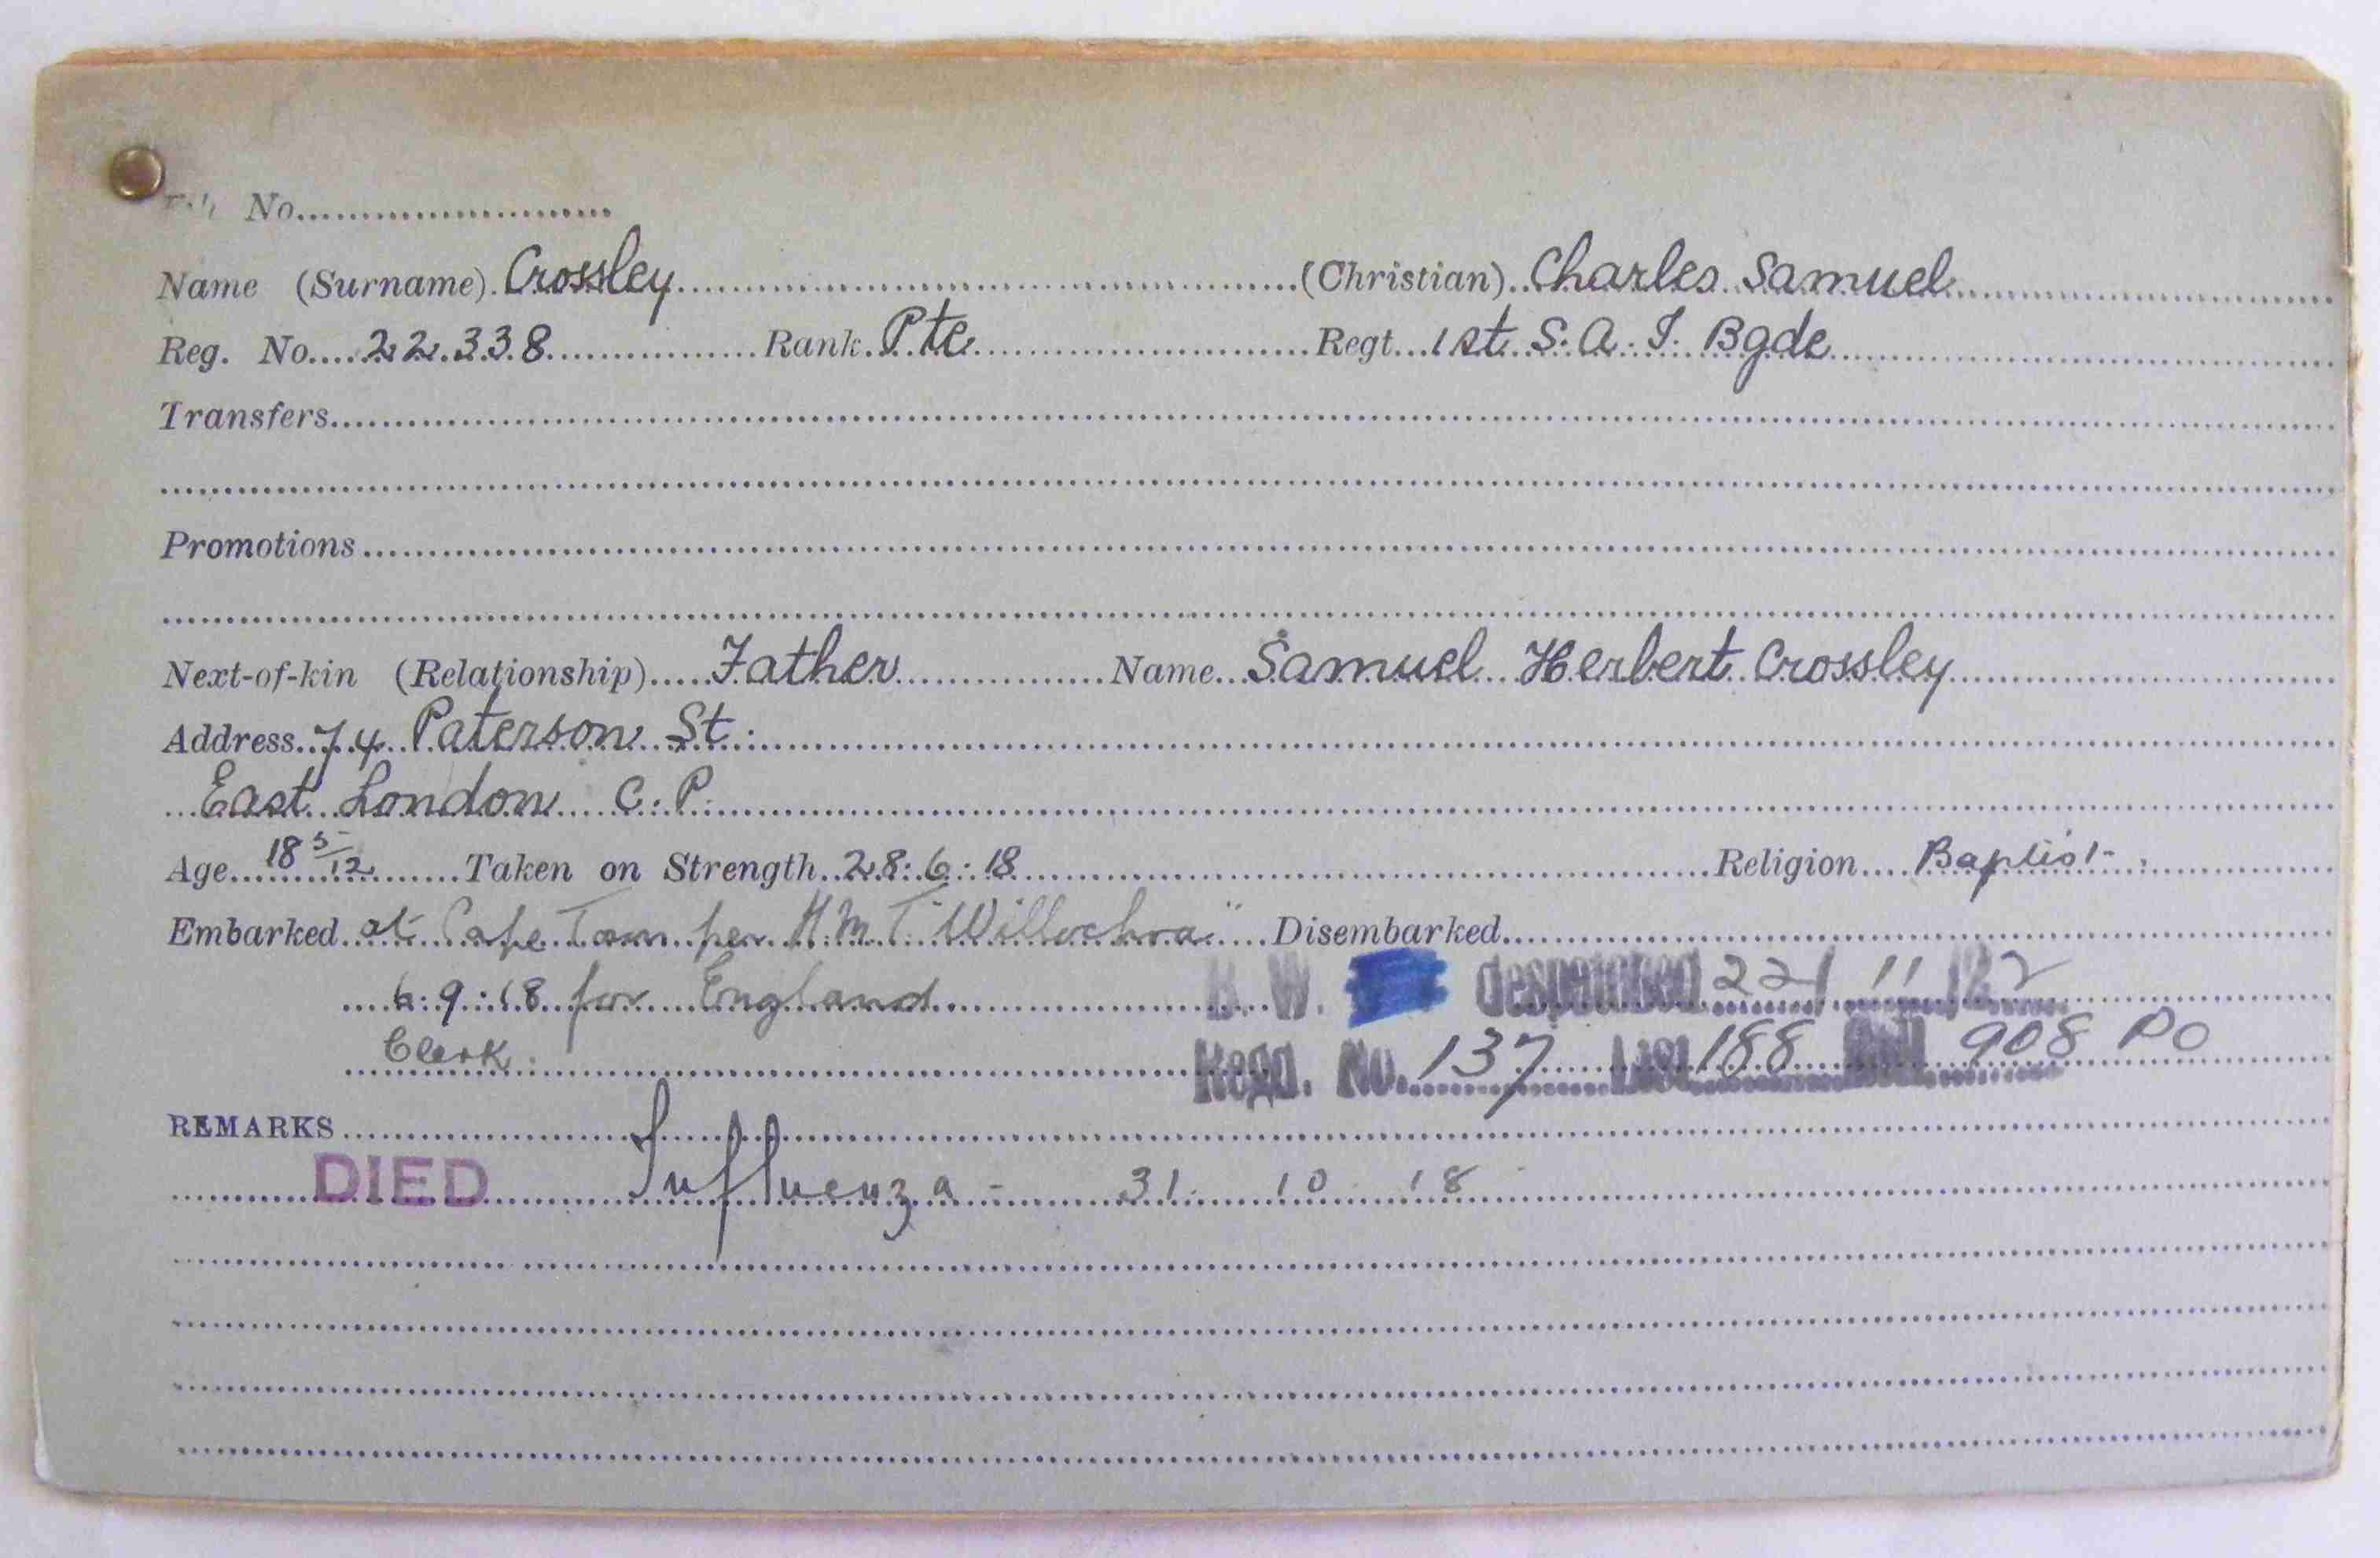 No.
Name (Surname) Crossley (Christian) Charles Samuel
Reg. No. 22338 Rank Pte Regt 1st S.A.I. Bgde
Transfers
Promotions
Next-of-kin (Relationship) Father Name Samuel Herbert Crossley
Address 74 Paterson St.
East London C.P.
Age 18 5/12 Taken on Strength 28.6.18 Religion Baptist.
Embarked at Cape Town per H.M.T. "Willochra" Disembarked
6.9.18 for England B.W. despatched 22/11/22
Clerk. Regd. No. 137 List 188 908 PO
REMARKS
DIED Influenza - 31 10 18